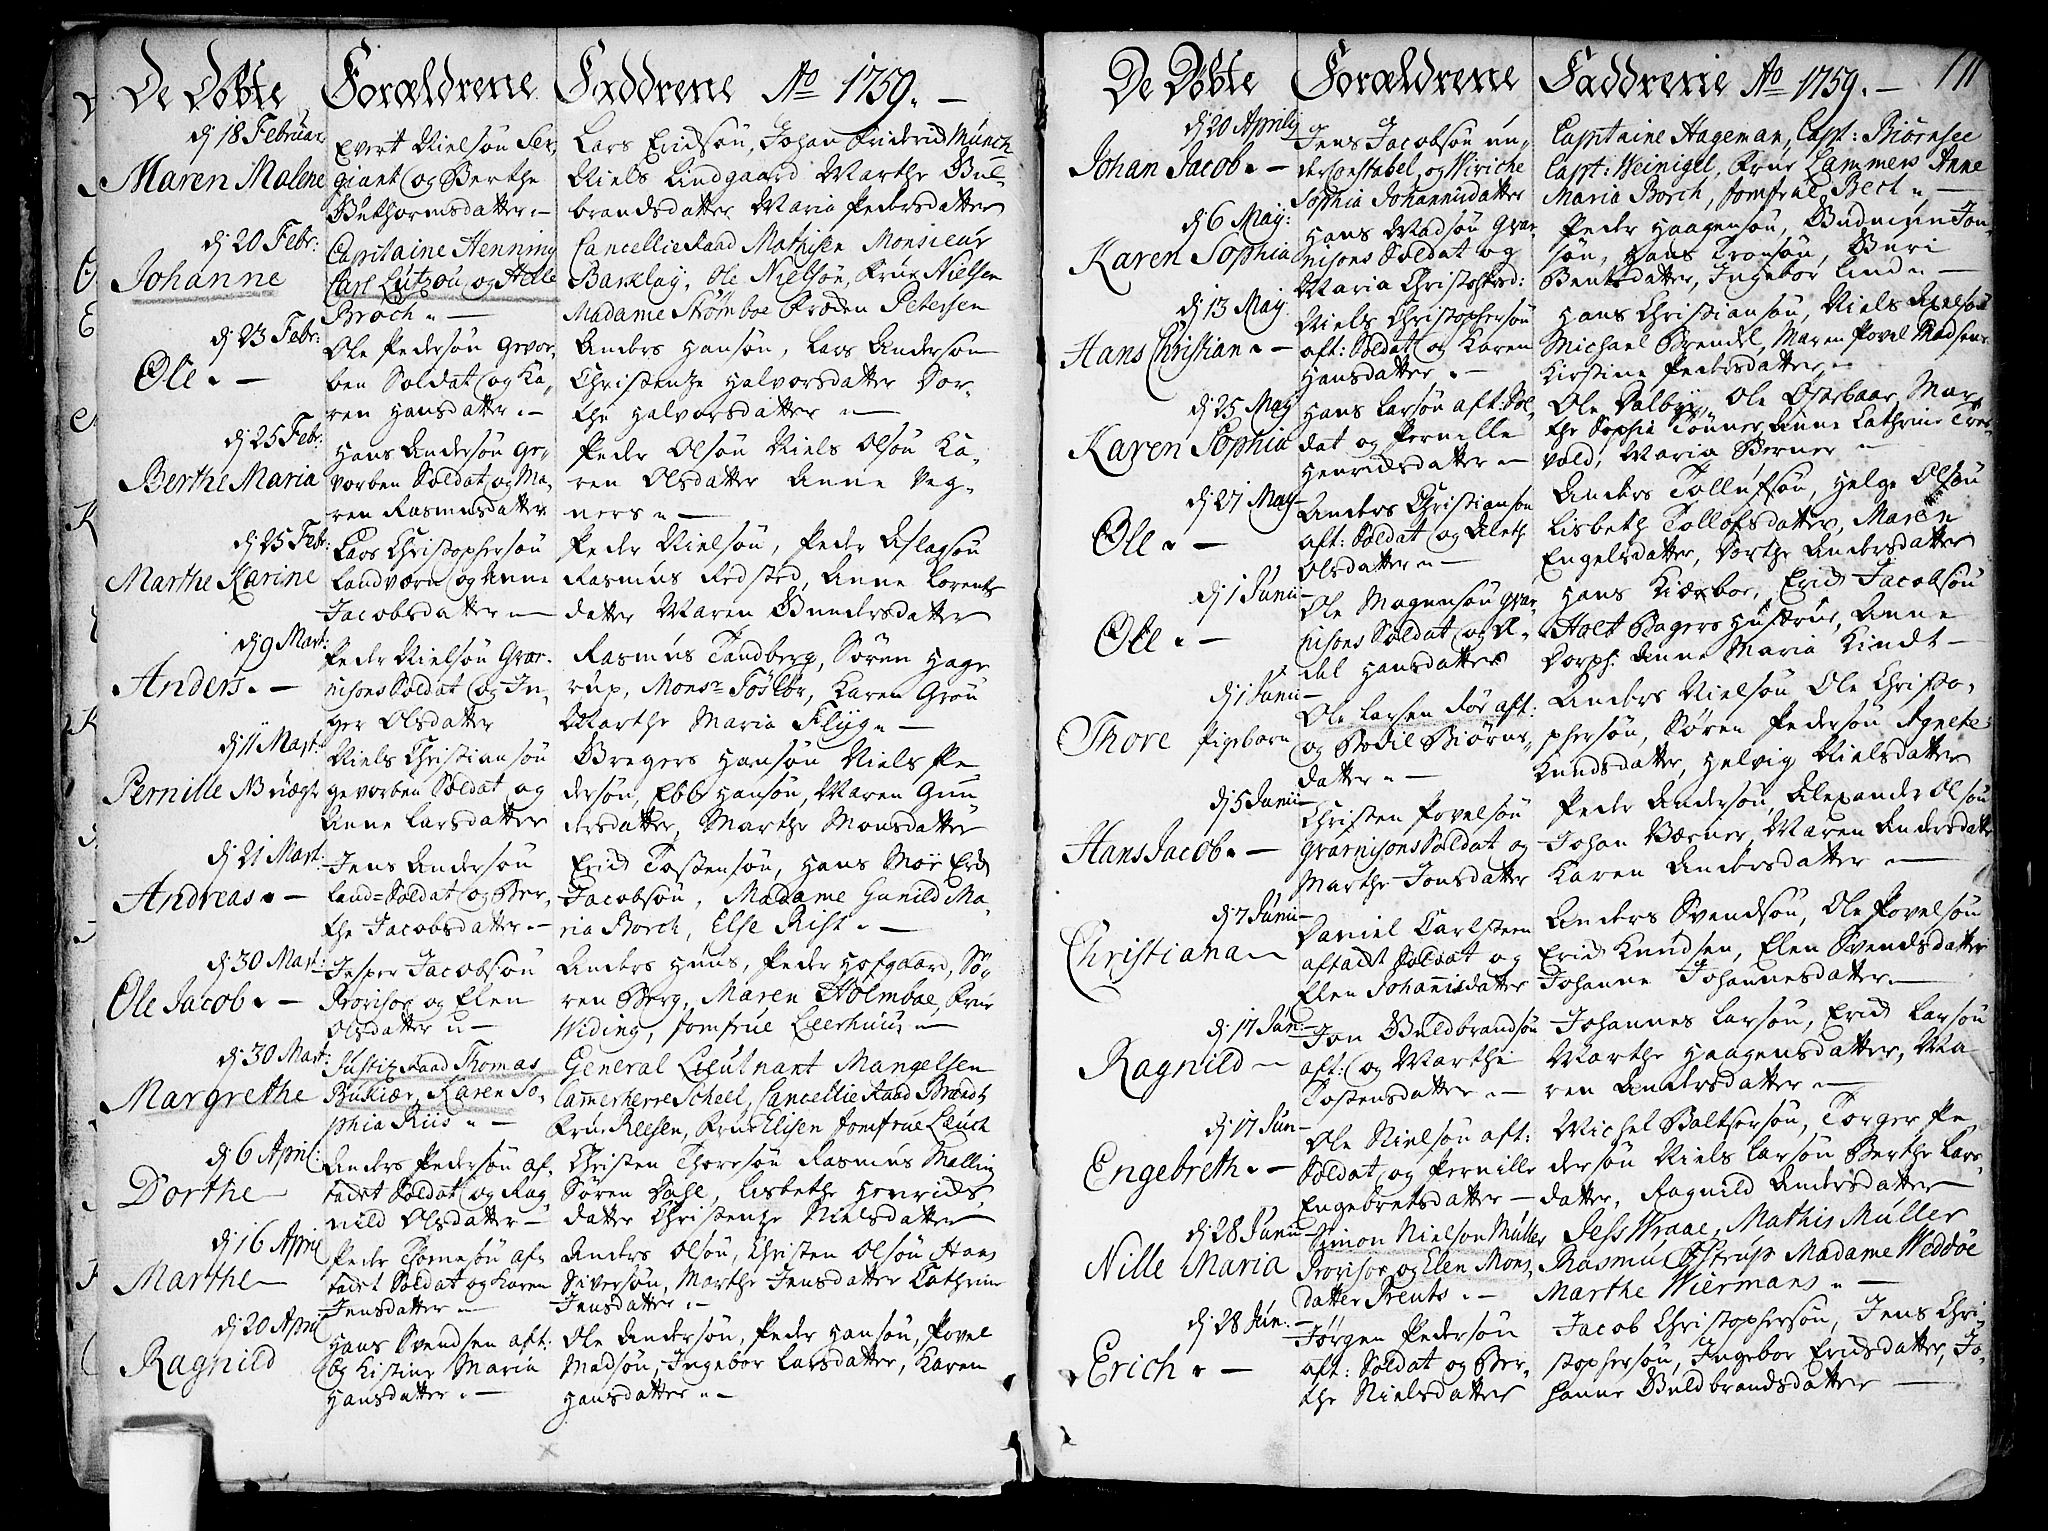 De Döbte Forældrene Faddrene Ao 1759. —
dj 18 Februar
Maren Malene
Evert Nielsön Ser,
giant og Berthe
Buthormsdatter. —
Lars Ericksön, Johan Friderick Münch
Niels Lindgaard Marthe Gul-
brandsdatter Maria Pedersdatter
dj 20 Febr:
Johanne
Capitaine Henning
Carl Lützou og Helle
Broch. —
Cancellie Raad Mathisen Monsieur
Barklay, Ole Nielsön, Frue Nielsen
Madame Strömboe Fröden Petersen
dj 23 Febr:
Ole. —
Ole Pedersön gevor-
ben Soldat og Ka,
ren Hansdatter. —
Anders Hansön, Lars Anderson
Christentze Halvorsdatter Dor-
the Halvorsdatter —
dj 25 Febr:
Berthe Maria
Hans Andersön ge,
vorben Soldat og Ma-
ren Rasmusdatter
Peder Olsön Niels Olsön Ka-
ren Olsdatter Anne Veg-
ners. —
dj 25 Febr:
Marthe Karine
Lars Christophersön
Landværn og Anne
Jacobsdatter —
Peder Nielsön, Peder Aslagsön
Rasmus Redsted, Anne Lorents
datter Maren Gundersdatter
dj 9 Mart:
Anders. —
Peder Nielsön Guar-
nisons Soldat og In-
ger Olsdatter
Rasmus Tandberg, Sören Hage
rup, Monsr Foslör, Karen Grön
Marthe Maria Flyg. —
dj 11 Mart:
Pernille N Brügt
Niels Christiansön
gevorben Soldat og
Anne Larsdatter
Bregers Hansön Niels Pe
dersön, Ebb Hansön, Maren Gun
dersdatter, Marthe Monsdatter
dj 21 Mart:
Andreas. —
Jens Andersön
land=Soldat og Ber-
the Jacobsdatter. —
Erick Tostensön, Hans Moe Erik
Jacobsön, Madame Gunild Ma-
ria Borch, Else Rist. —
dj 30 Mart:
Ole Jacob. —
Jesper Jacobsön
Provisor og Elen
Olsdatter —
Anders Huus, Peder Hofgaard, Sö-
ren Berg, Maren Holmboe, Frue
Widing, Jomfrue Leerhuus —
dj 30 Mart:
Margrethe
Justiz Raad Thomas
Bukiær, Karen So-
phia Riis. —
General Lieutnant Mangelsen
Camerherre Scheel, Cancellie Raad Brandt
Frue Reesen, Frue Elisen Jomfrue Leuch
dj 6 April:
Dorthe —
Anders Pedersön af-
tadet Soldat og Rag
nild Olsdatter —
Christen Thoresön Rasmus Malling
Sören Dahl, Lisbethe Henrichs
datter Christentze Nielsdatter
dj 16 April
Marthe —
Peder Tomesön af-
tadet Soldat og Karen
Jensdatter —
Anders Olsön, Christen Olsön Hans
Siversön, Marthe Jensdatter Cathrine
Jensdatter. —
dj 20 April
Ragnild
Hans Svendsen aft:
og Kistine Maria
Hansdatter. —
Ole Andersön, Peder Hansön, Povel
Madsön, Ingebor Larsdatter, Karen
Hansdatter —
De Döbte Forældrene Faddrene Ao 1759. — 171
dj 20 Aprilij
Johan Jacob. —
Jens Jacobsön un-
derconstabel, og Wiriche
Sophia Johannisdatter
Capitaine Hageman, Capt: Biörnsee
Capt: Weinigel, Frue Lammers Anne
Maria Borch, Jomfrue Bech. —
dj 6 May:
Karen Sophia
Hans Madsön Guar-
nisons Soldat og
Maria Christophersd:
Peder Haagensön, Gudmun Jon-
sön, Hans Tronsön, Guri
Bentsdatter, Ingebor Lind —
dj 13 May
Hans Christian. —
Niels Christophersön
aft: Soldat og Karen
Hansdatter. —
Hans Christiansön, Niels Axelsön
Michael Brendel, Maren Povel Madsens
Kirstine Pedersdatter. —
dj 25 May
Karen Sophia
Hans Larsön aft: Sol-
dat og Pernille
Henrichsdatter —
Ole Dalbye, Ole Osterbaar, Mar-
the Sophia Tönner, Anne Cathrine Tor-
vold, Maria Berner —
dj 27 May
Ole. —
Anders Christianson
aft: Soldat og Aleth
Olsdatter —
Anders Tollufsön, Helge Olsön
Lisbeth Tollofsdatter, Maren
Engelsdatter, Dorthe Andersdatter
dj 1 Junii
Ole. —
Ole Magensön Guar-
nisons Soldat og A-
del Hansdatter
Hans Kiærboe, Erick Jacobsön
Holt Bagers Hustrue, Anne
Dorph. Anne Maria Kindt —
dj 1 Junii
Thore Pigebarn
Ole Larsen Roe aft:
og Bodil Biörns-
datter —
Anders Nielsön Ole Christo-
phersön, Sören Pedersön Agnete
Knudsdatter, Helvig Nielsdatter
dj 5 Junii
Hans Jacob. —
Christen Povelsön
Guarnisons Soldat og
Marthe Jonsdatter
Peder Andersön, Alexander Olsön
Johan Værner, Maren Andersdatter
Karen Andersdatter —
dj 7 Junii
Christiana —
Daniel Carlsteen
aftadt Soldat og
Elen Johannisdatter
Anders Svendsön, Ole Povelsön
Erick Knudsen, Elen Svendsdatter
Johanne Johannesdatter —
dj 17 Jun:
Ragnild —
Jon Guldbrandsön
aft: og Marthe
Tostensdatter. —
Johannes Larsön, Erick Larsön
Marthe Haagensdatter, Ma
ren Andersdatter —
dj 17 Jun
Engebreth. —
Ole Nielsön aft:
Soldat, og Pernille
Engebretsdatter —
Michel Baltsersön, Torger Pe
dersön Niels Larsön Berthe Lars-
datter, Ragnild Andersdatter
dj 28 Junii
Nille Maria
Simon Nielson Müller
Provisor, og Elen Mons-
datter Prents. —
Jess Wraae, Mathis Müller
Rasmus Ostrup Madame Weddöe
Marthe Wiermans. —
dj 28 Jun:
Erich. —
Jörgen Pedersön
aft: Soldat og Ber-
the Nielsdatter
Jacob Christophersön, Jens Chri-
stophersön, Ingebor Ericksdatter, Jo-
hanne Guldbrandsdatter —